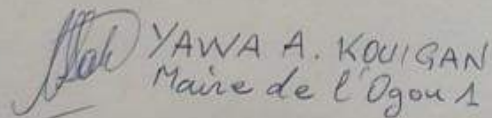 YAWA A. KOUIGAN
Maire de l'Ogou 1